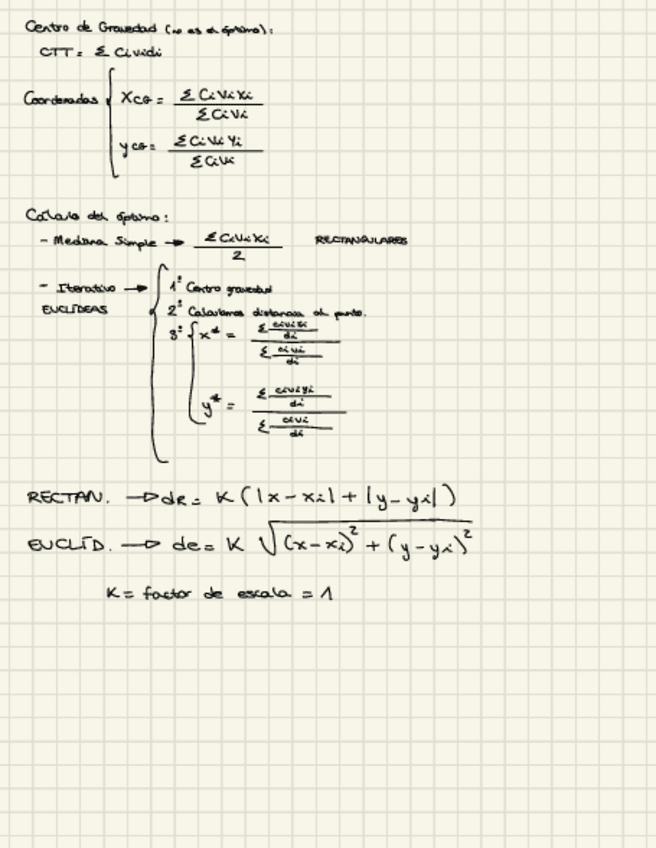 Centro de Gravedad (no es el óptimo):
CTT = Σ Cividi
Coordenadas { XCG = Σ CiViXi / Σ CiVi
yCG = Σ CiViYi / Σ CiVi
Cálculo del óptimo:
- Mediana Simple → Σ CiViXi / 2 RECTANGULARES
- Iterativo → { 1º Centro gravedad
EUCLÍDEAS 2º Calculamos distancia al punto.
3º { x* = Σ civixi/di / Σ civi/di
y* = Σ civiyi/di / Σ civi/di
RECTAN. → dR = K (|x - xi| + |y - yi|)
EUCLÍD. → de = K √(x - xi)² + (y - yi)²
K = factor de escala = 1